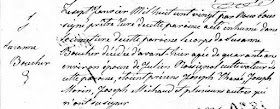 J
Le sept Janvier mil huit cent vingt par nous sous
signé curé de cette paroisse a été inhumé dans
Suzanne
le cimetière de cette paroisse le corps de Suzanne
Boucher
Boucher décédé d'avant hier agée de quarante ans
environ épouse de Julien Cultivateur de
cette paroisse, étaient présens Joseph Joseph
Morin, Joseph Michaud et plusieurs autres qui
n'ont su signer